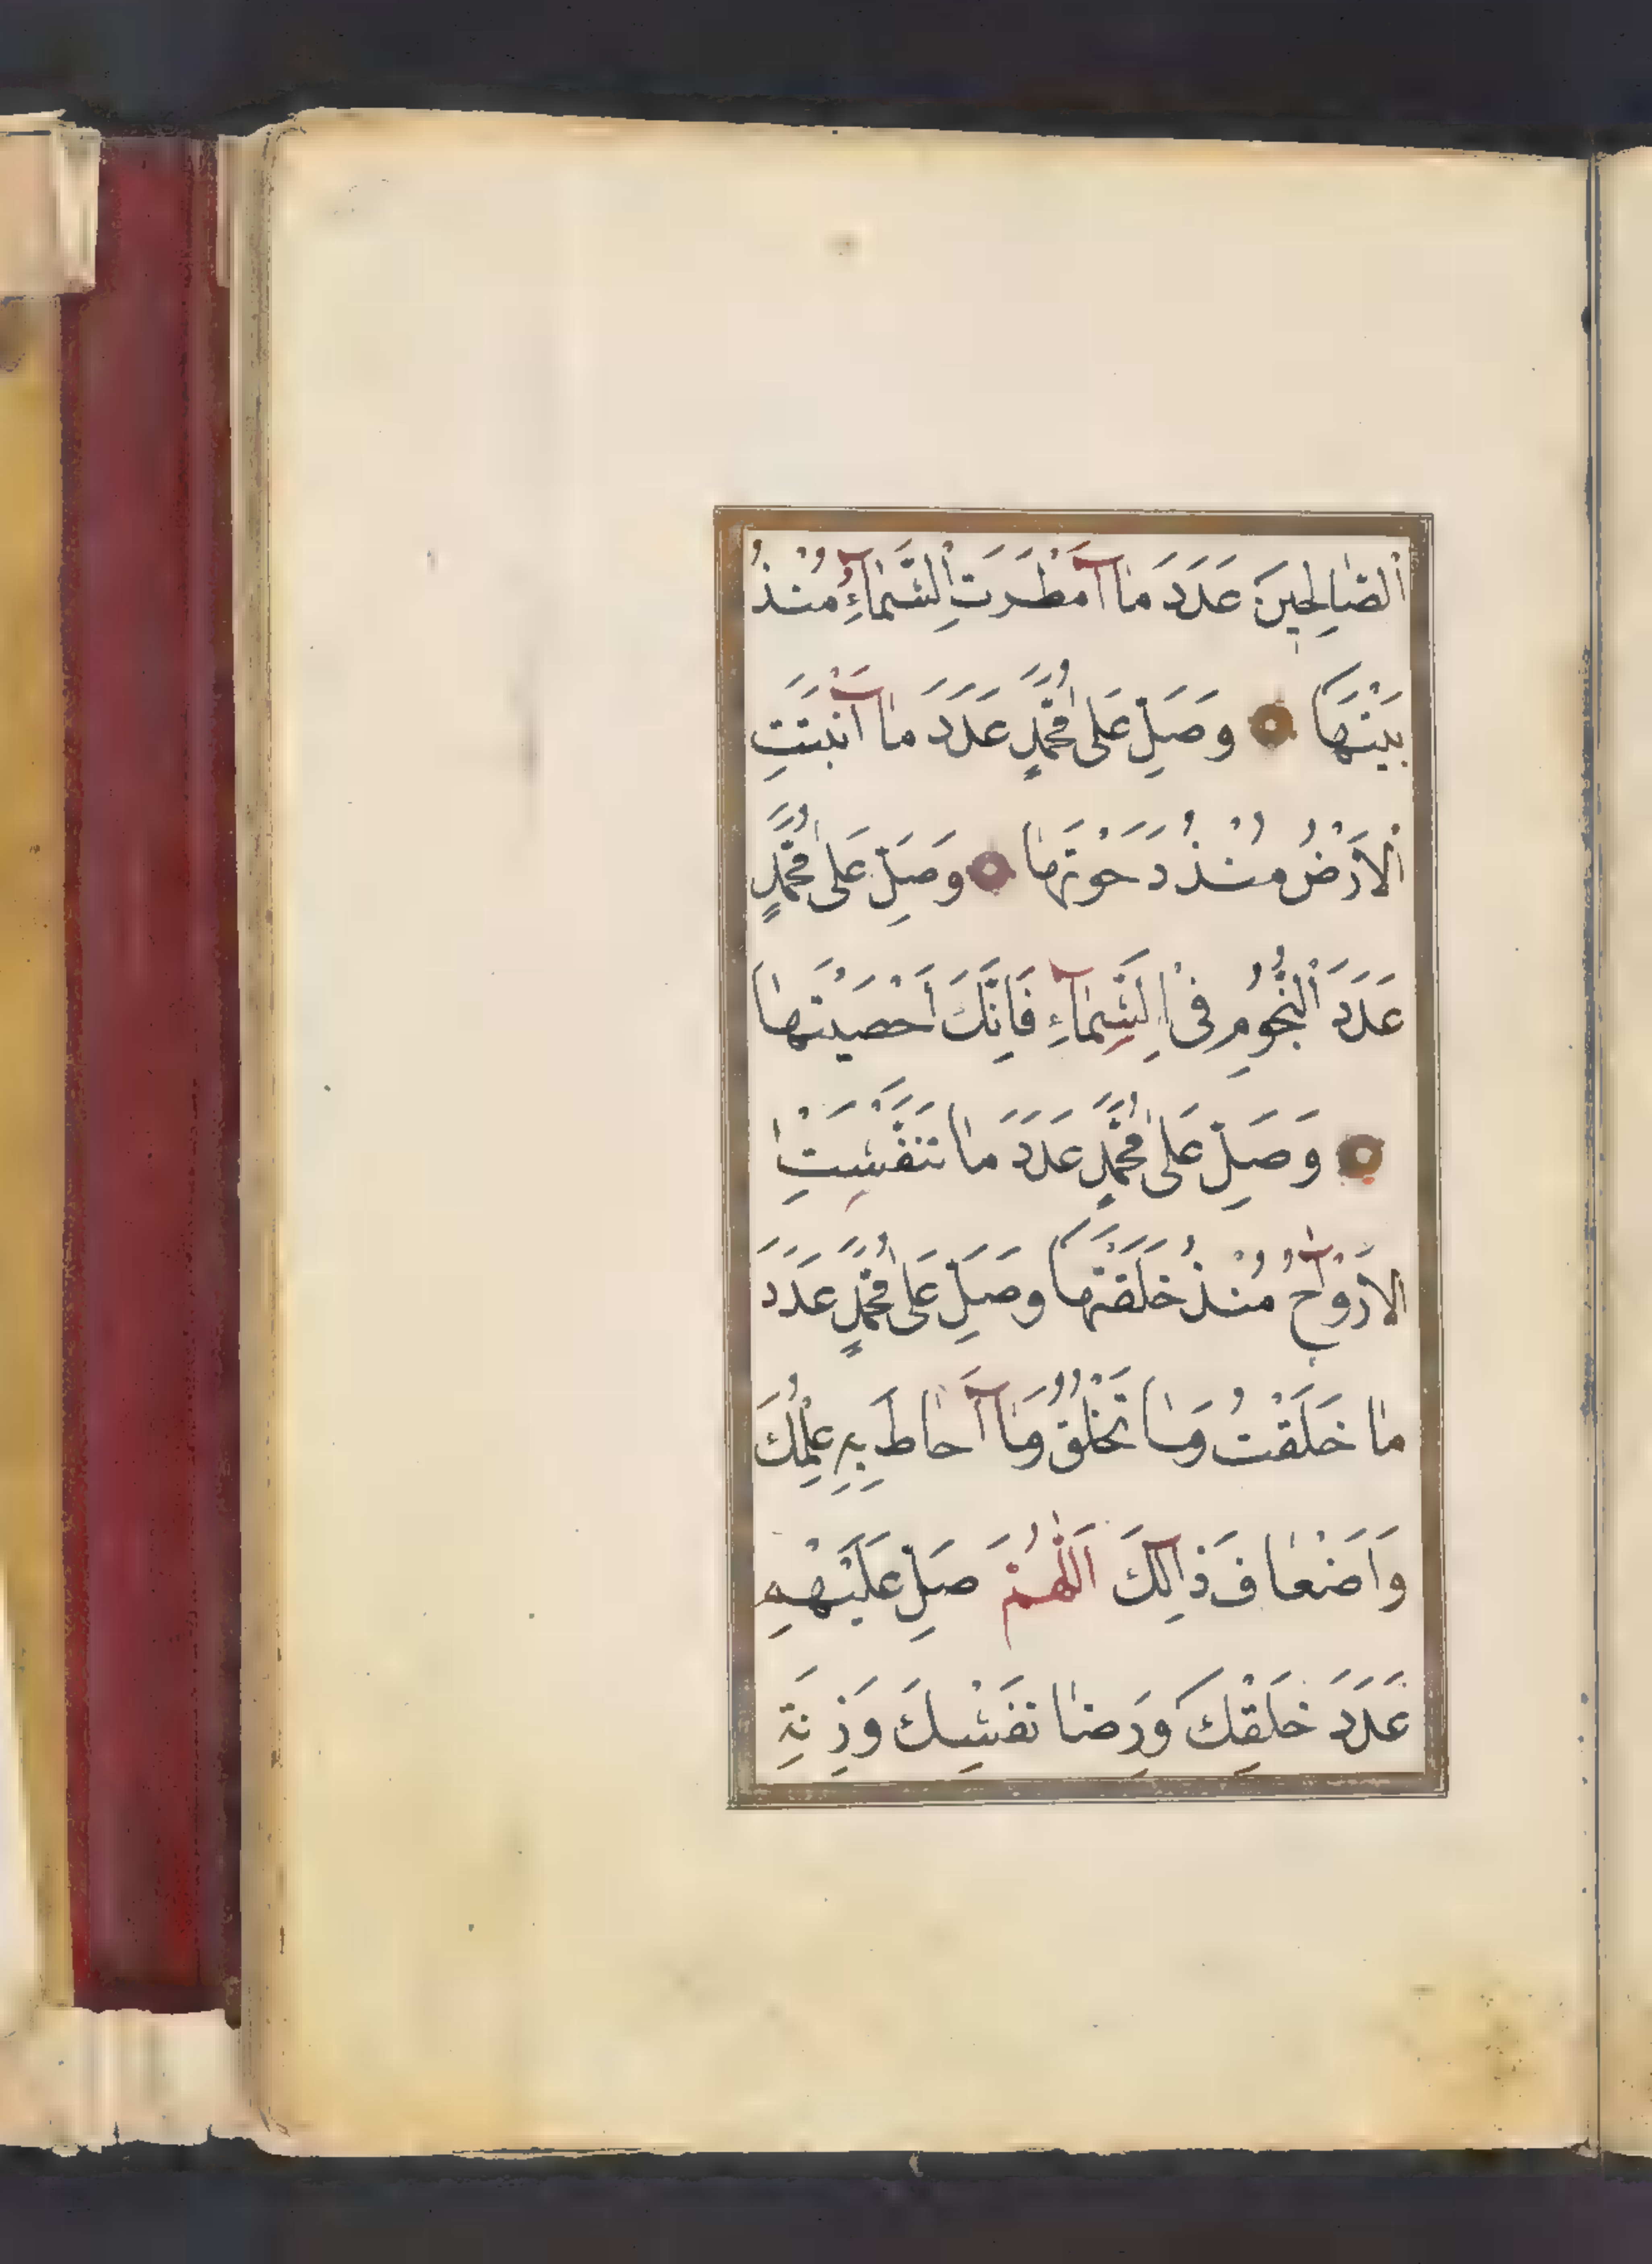 اَلصَّالِحِينَ عَدَدَ مَا اَمْطَرَتِ السَّمَاءُ مُنْذُ
بَنَيْتَهَا وَصَلِّ عَلٰى مُحَمَّدٍ عَدَدَ مَا اَنْبَتَتِ
الْاَرْضُ مُنْذُ دَحَوْتَهَا وَصَلِّ عَلٰى مُحَمَّدٍ
عَدَدَ النُّجُومِ فِى السَّمَاءِ فَاِنَّكَ اَحْصَيْتَهَا
وَصَلِّ عَلٰى مُحَمَّدٍ عَدَدَ مَا تَنَفَّسَتِ
الْاَرْوَاحُ مُنْذُ خَلَقْتَهَا وَصَلِّ عَلٰى مُحَمَّدٍ عَدَدَ
مَا خَلَقْتَ وَمَا تَخْلُقُ وَمَا اَحَاطَ بِهِ عِلْمُكَ
وَاَضْعَافَ ذَالِكَ اَللّٰهُمَّ صَلِّ عَلَيْهِمْ
عَدَدَ خَلْقِكَ وَرِضَا نَفْسِكَ وَزِنَةِ